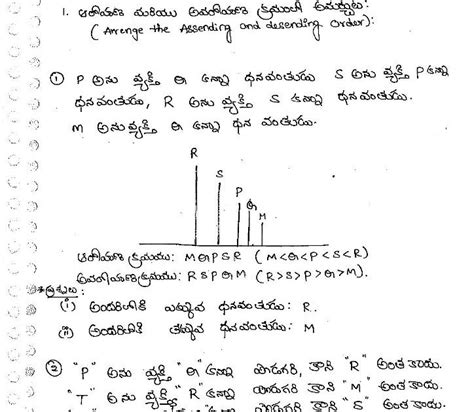 1. ఆరోహణ మరియు అవరోహణ క్రమంలో అమర్చుట:
( Arrenge the Assending and desending Order):
① P అను వ్యక్తి Q కన్నా ధనవంతుడు S అను వ్యక్తి P కన్నా
ధనవంతుడు, R అను వ్యక్తి S కన్నా ధనవంతుడు.
M అను వ్యక్తి Q కన్నా ధనవంతుడు.
R
S
P
Q
M
ఆరోహణ క్రమము: M Q P S R ( M < Q < P < S < R)
అవరోహణ క్రమము: R S P Q M ( R > S > P > Q > M).
(i) అందరిలోకి ఎక్కువ ధనవంతుడు: R.
(ii) అందరిలోకి తక్కువ ధనవంతుడు: M
② "P" అను వ్యక్తి "Q" కన్నా పొడుగరి, కాని "R" అంత కాదు.
"T" అను వ్యక్తి "R" కన్నా పొడుగరి కాని "M" అంత కాదు.
"S" అంత కాదు.